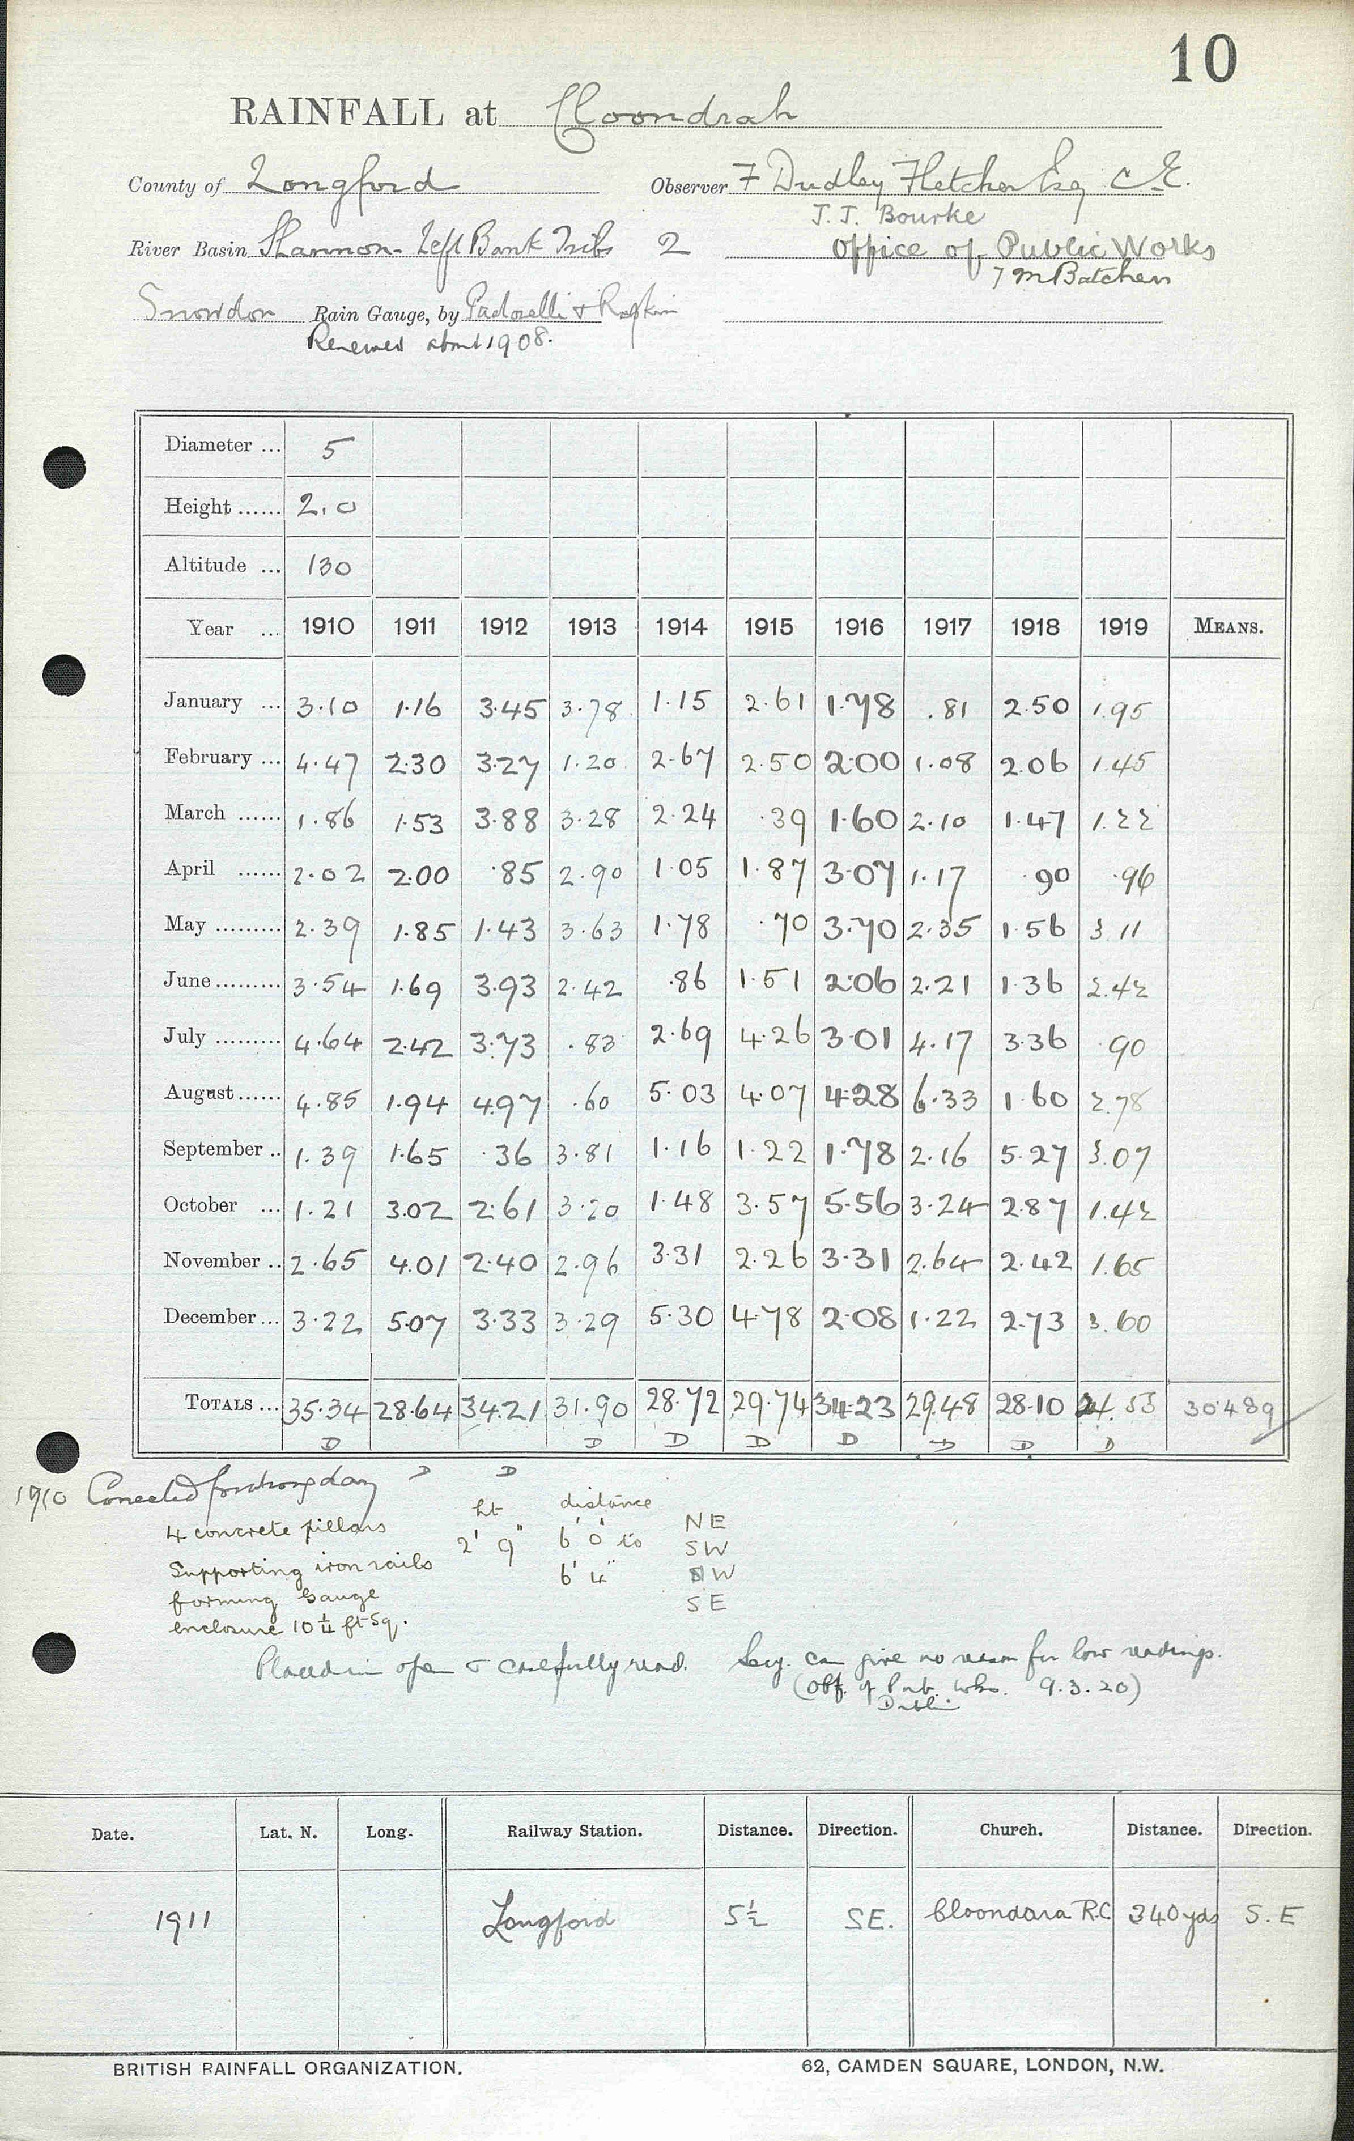 10
RAINFALL at Cloondrah
County of Longford Observer F Dudley Fletcher Esq C.E.
J. J. Bourke
River Basin Shannon - Left Bank Tribs 2 Office of Public Works
T M Batchen
Snowdon Rain Gauge, by Pastorelli & Rapkin
Renewed about 1908.
Diameter ... 5
Height ...... 2.0
Altitude ... 130
Year ... 1910 1911 1912 1913 1914 1915 1916 1917 1918 1919 MEANS.
January ... 3.10 1.16 3.45 3.78 1.15 2.61 1.78 .81 2.50 1.95
February ... 4.47 2.30 3.27 1.20 2.67 2.50 2.00 1.08 2.06 1.45
March ...... 1.86 1.53 3.88 3.28 2.24 .39 1.60 2.10 1.47 1.22
April ...... 2.02 2.00 .85 2.90 1.05 1.87 3.07 1.17 .90 .96
May ......... 2.39 1.85 1.43 3.63 1.78 .70 3.70 2.35 1.56 3.11
June ......... 3.54 1.69 3.93 2.42 .86 1.51 2.06 2.21 1.36 2.42
July ......... 4.64 2.42 3.73 .83 2.69 4.26 3.01 4.17 3.36 .90
August ...... 4.85 1.94 4.97 .60 5.03 4.07 4.28 6.33 1.60 2.78
September .. 1.39 1.65 .36 3.81 1.16 1.22 1.78 2.16 5.27 3.07
October ... 1.21 3.02 2.61 3.20 1.48 3.57 5.56 3.24 2.87 1.42
November .. 2.65 4.01 2.40 2.96 3.31 2.26 3.31 2.64 2.42 1.65
December ... 3.22 5.07 3.33 3.29 5.30 4.78 2.08 1.22 2.73 3.60
TOTALS ... 35.34 28.64 34.21 31.90 28.72 29.74 34.23 29.48 28.10 24.53 30.489
D D D D D D D D
D D
1910 Corrected for wrong day
ht distance
4 concrete pillars 2' 9" 6' 0" to NE
SW
Supporting iron rails 6' 4" NW
forming Gauge SE
enclosure 10¼ ft Sq.
Placed in open & carefully read. Secy. can give no reason for low readings.
(Off. of Pub. Wks. 9.3.20)
Dublin
Date. Lat. N. Long. Railway Station. Distance. Direction. Church. Distance. Direction.
1911 Longford 5½ SE. Cloondara R.C 340 yds S.E
BRITISH RAINFALL ORGANIZATION. 62, CAMDEN SQUARE, LONDON, N.W.